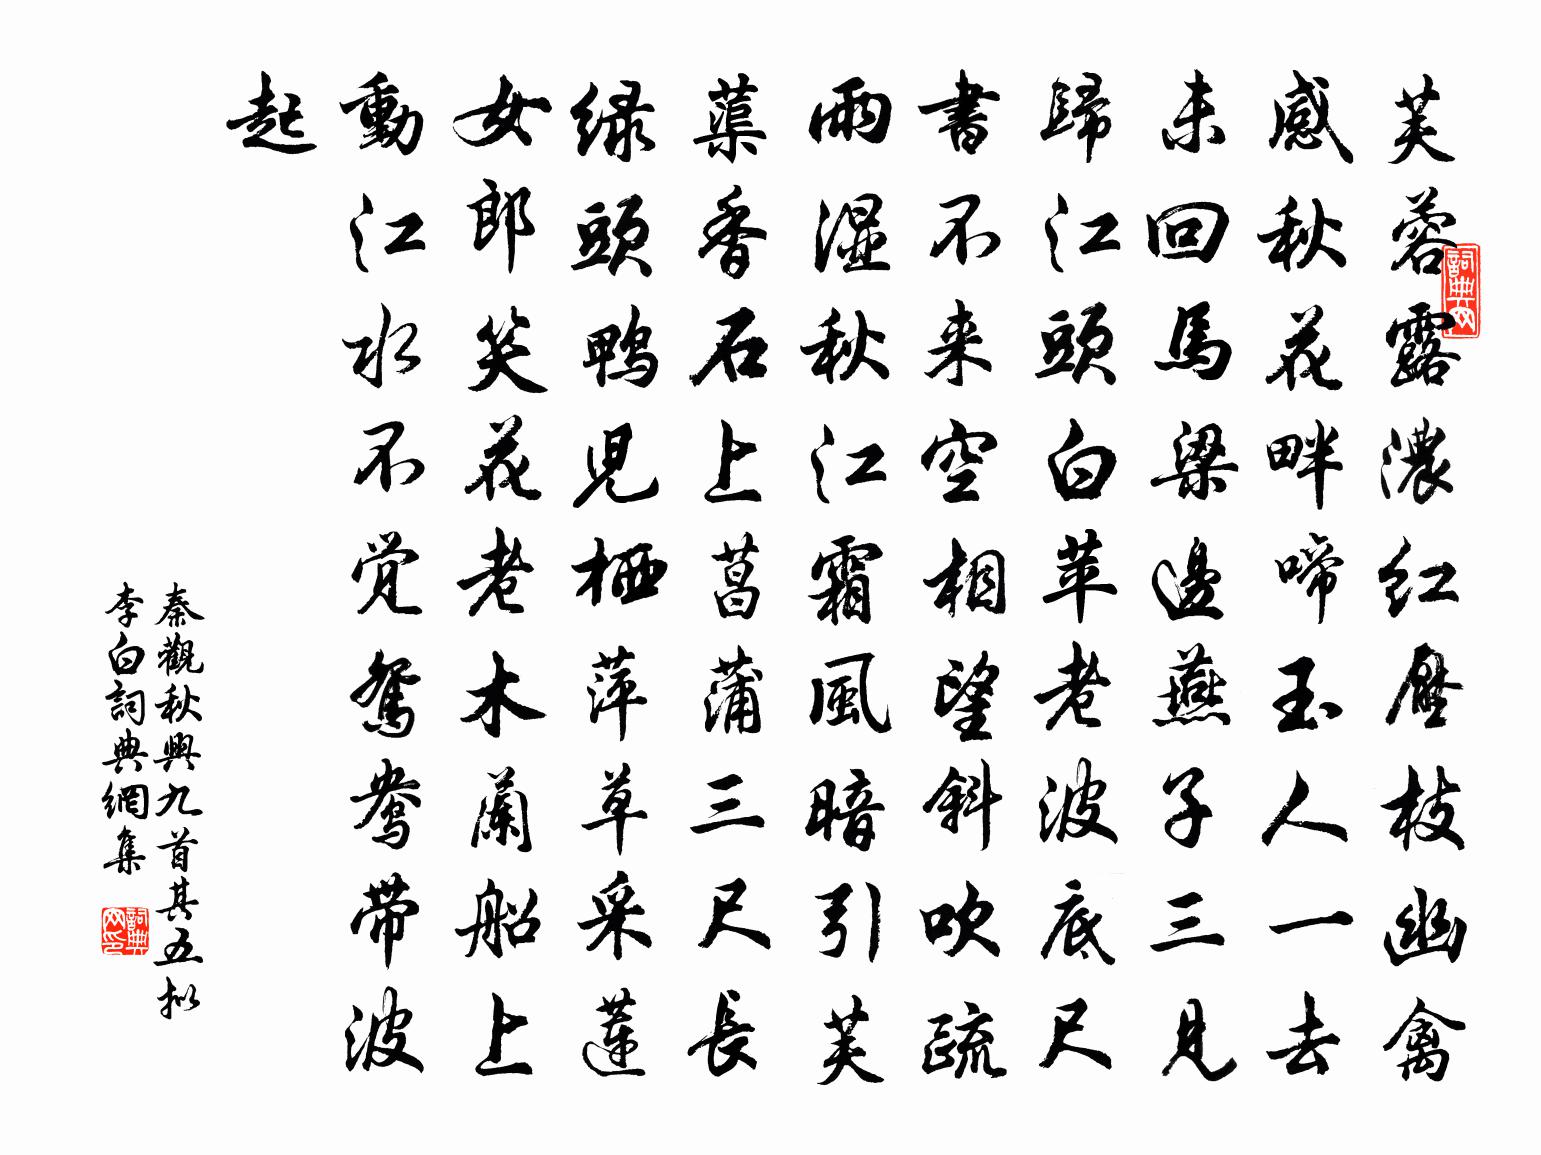 芙蓉露濃红壓枝幽禽
感秋花畔啼玉人一去
未回馬梁邊燕子三見
歸江頭白苹老波底尺
書不来空相望斜吹疏
雨湿秋江霜風暗引芙
蕖香石上菖蒲三尺長
緑頭鴨児栖萍草采蓮
女郎笑花老木蘭船上
動江水不覚鴛鴦帯波
起
秦觀秋興九首其五拟
李白詞典網集
詞典网
詞典网印